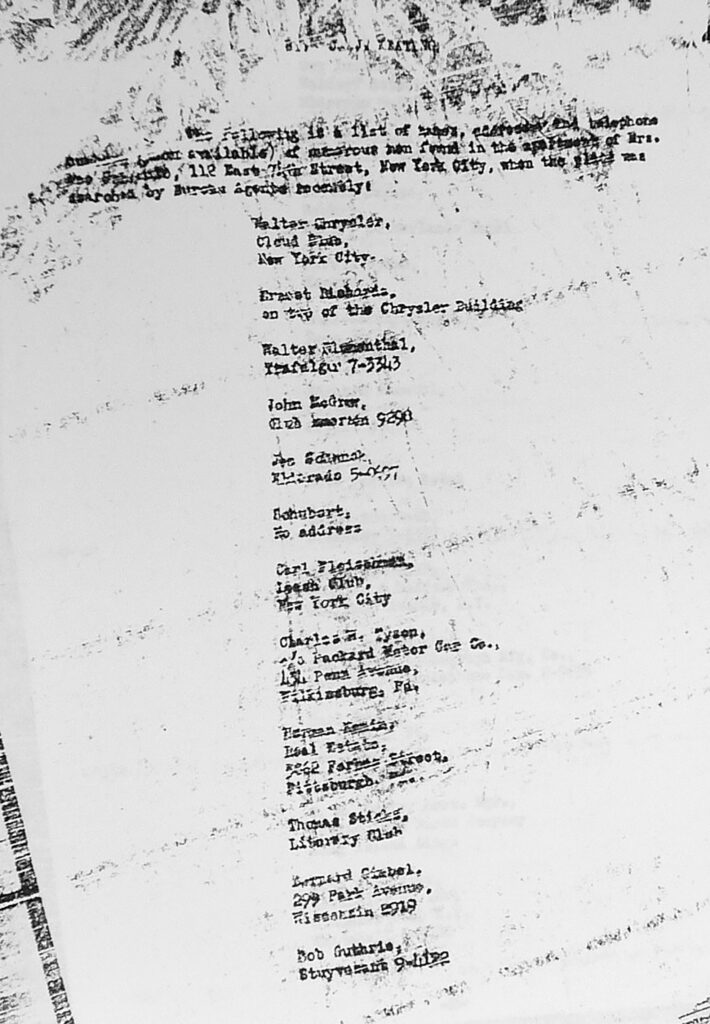 The following is a list of names, addresses and telephone
(when available) of numerous men found in the apartment of Mrs.
Mae 112 East Street, New York City, when the place was
searched by Bureau Agents recently:
Walter Chrysler,
Cloud Club,
New York City.
Ernest Richards,
on top of the Chrysler Building
Walter Blumenthal,
Trafalgar 7-3343
John McGraw,
Club 9290
Joe
Eldorado
Schubert,
No address
Carl Fleischman,
Leash Club,
New York City
Charles H. Tyson,
c/o Packard Motor Car Co.,
Penn Avenue,
Wilkinsburg, Pa.
Herman
Real Estate,
Street,
Pittsburgh, Pa.
Thomas
Literary Club
Bernard Gimbel,
299 Park Avenue,
Wisconsin 2919
Bob Guthrie,
Stuyvesant